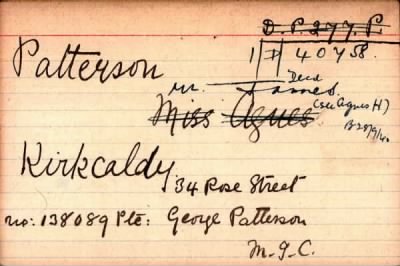 D. P. 277. P.
1 D 40758.
Patterson
Decd
m. James.
Miss Agnes (see Agnes H)
B 28/9/40
Kirkcaldy
34 Rose Street
no: 138089 Pte: George Patterson
M. G. C.